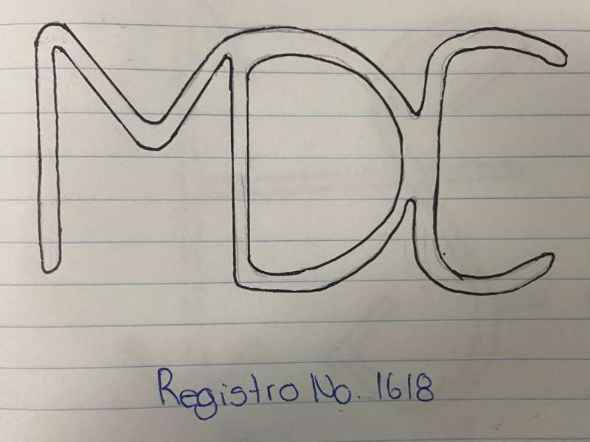 MDC
Registro No. 1618